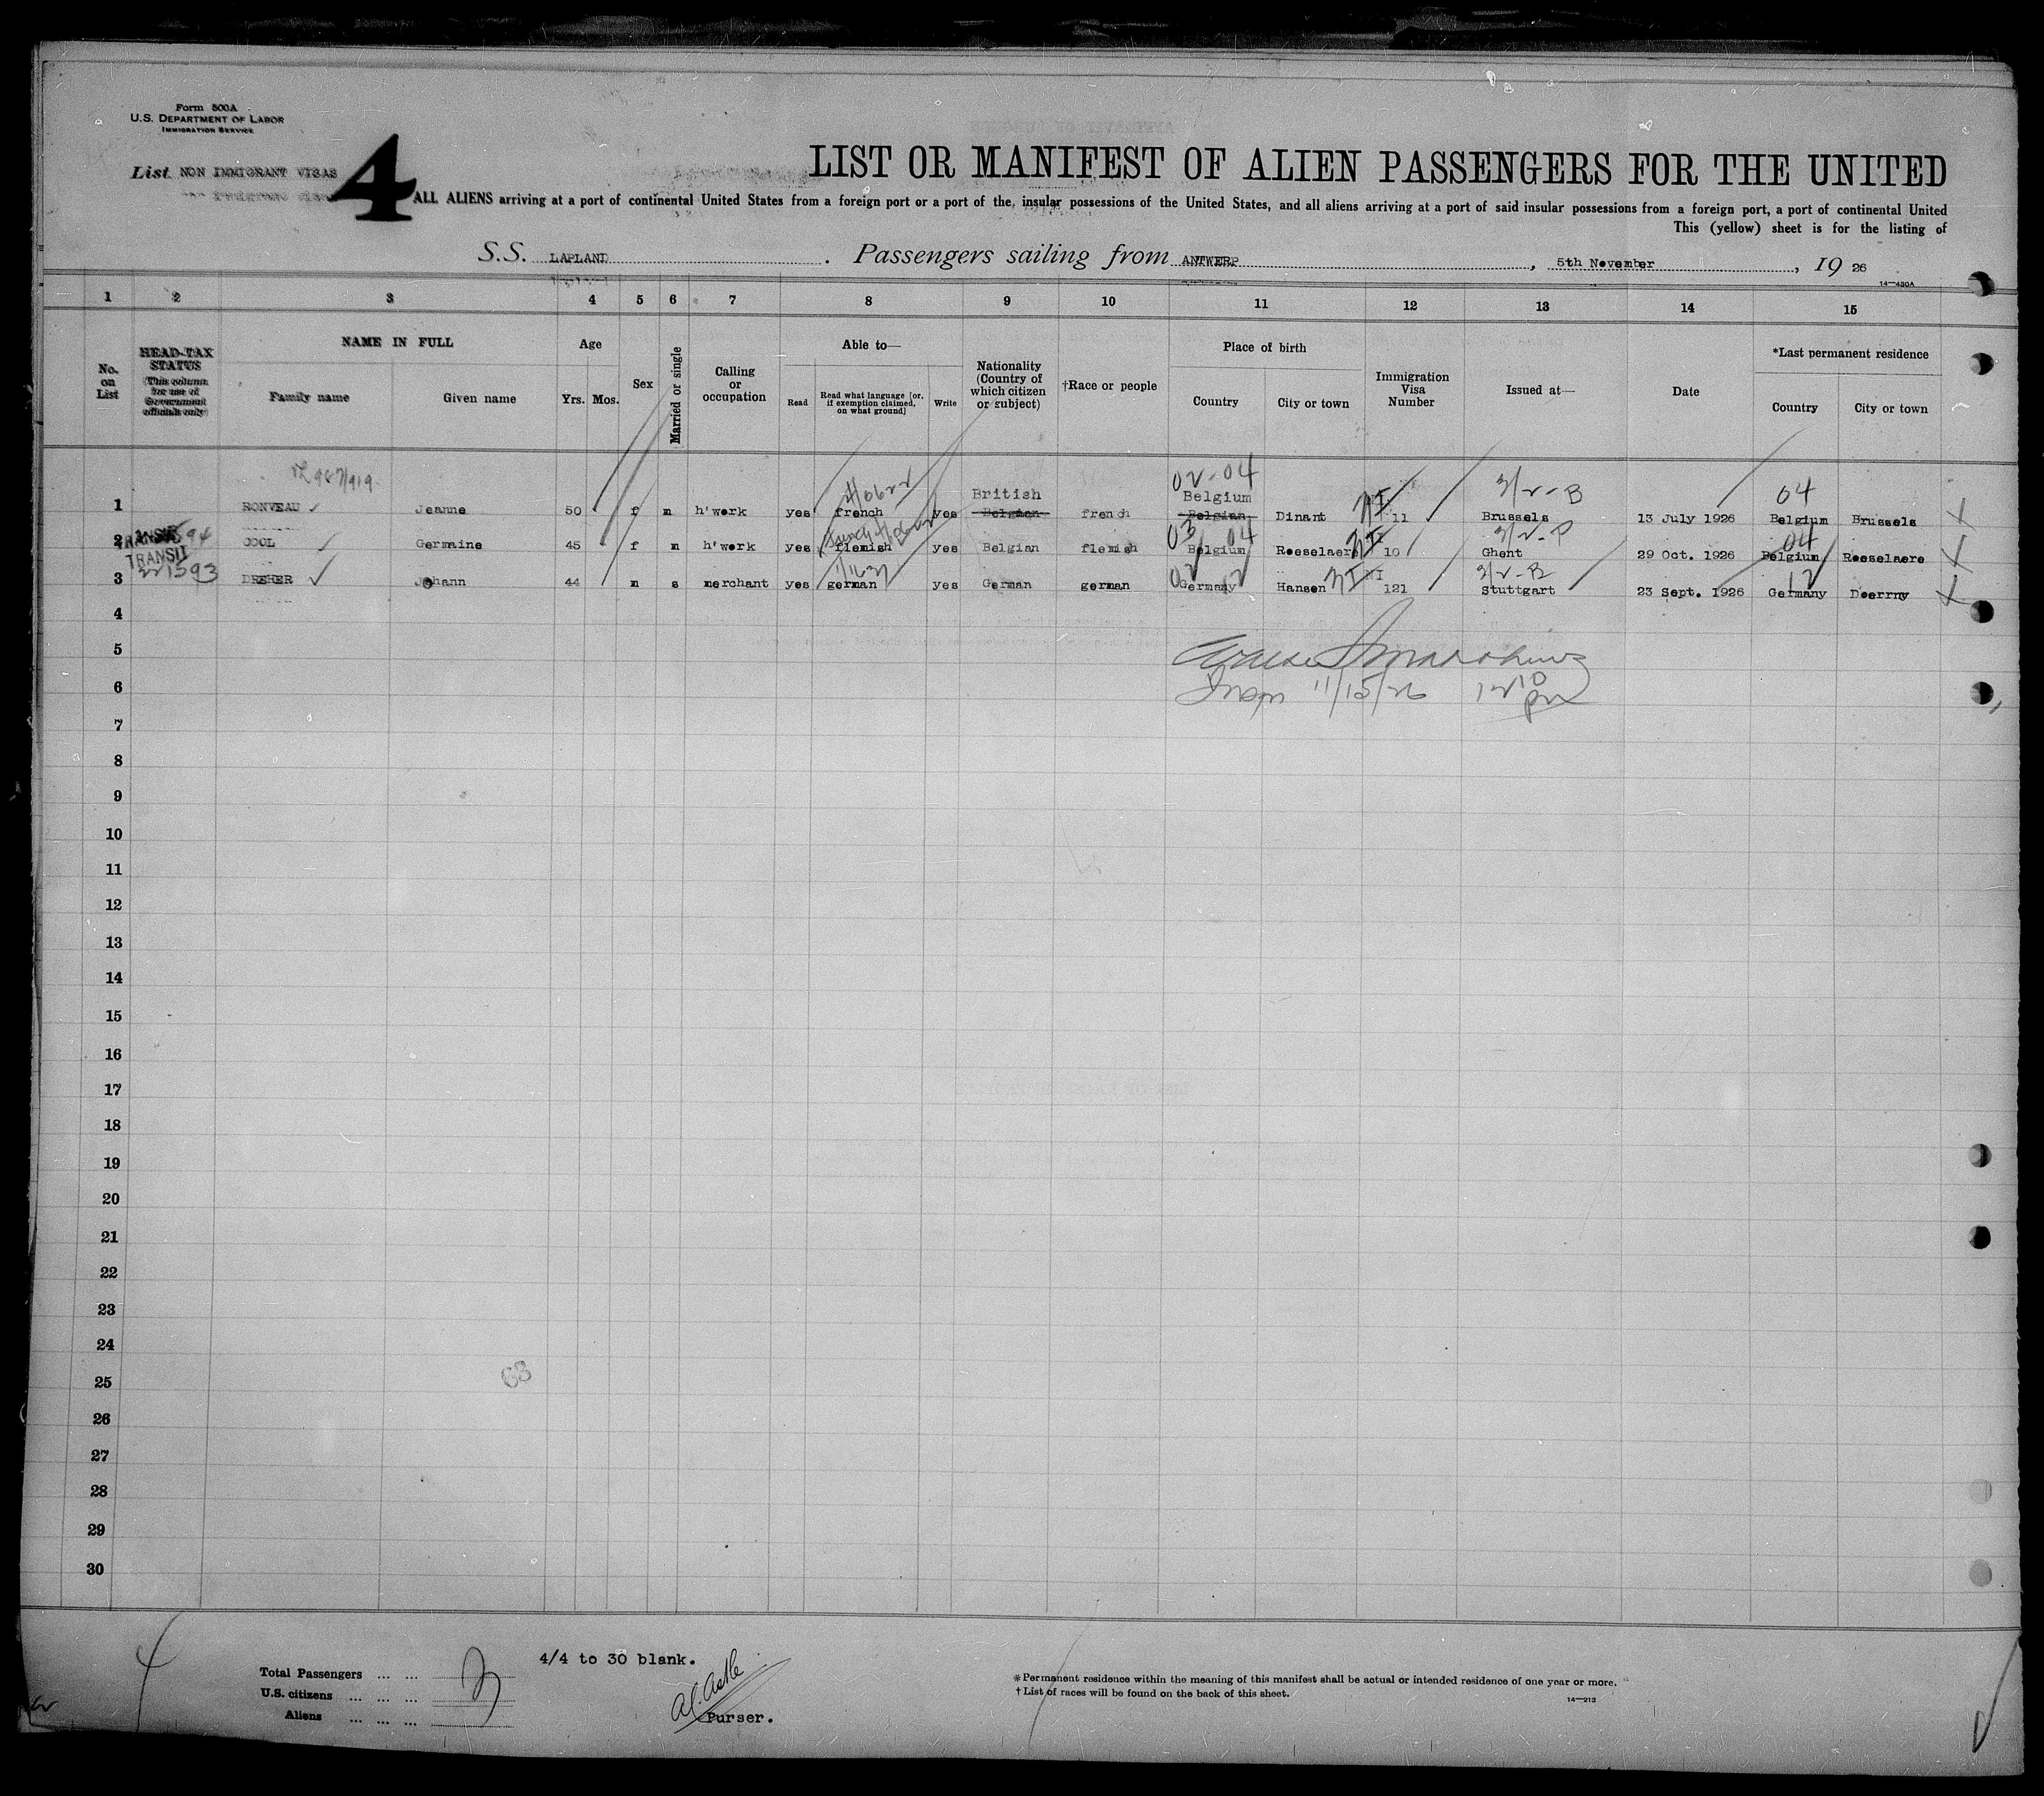 Form 500A
U.S. DEPARTMENT OF LABOR
IMMIGRATION SERVICE
List NON IMMIGRANT VISAS
4
LIST OR MANIFEST OF ALIEN PASSENGERS FOR THE UNITED
ALL ALIENS arriving at a port of continental United States from a foreign port or a port of the insular possessions of the United States, and all aliens arriving at a port of said insular possessions from a foreign port, a port of continental United
This (yellow) sheet is for the listing of
S.S. LAPLAND . Passengers sailing from ANTWERP , 5th November , 19 26
14—430A
1 2 3 4 5 6 7 8 9 10 11 12 13 14 15
No. on List
HEAD-TAX STATUS (This column for use of Government officials only)
NAME IN FULL
Family name Given name
Age
Yrs. Mos.
Sex
Married or single
Calling or occupation
Able to—
Read Read what language [or, if exemption claimed, on what ground] Write
Nationality (Country of which citizen or subject)
†Race or people
Place of birth
Country City or town
Immigration Visa Number
Issued at—
Date
*Last permanent residence
Country City or town
02-04 3/2-B 04
British Belgium
1 RONVEAU Jeanne 50 f m h'work yes french yes Belgian french Belgian Dinant 11 Brussels 13 July 1926 Belgium Brussels
TRANSIT 03 04 3/2-P 04
2 COOL Germaine 45 f m h'work yes flemish yes Belgian flemish Belgium Roeselaere 10 Ghent 29 Oct. 1926 Belgium Roeselaere
TRANSIT 02 12 3/2-B 12
3 DREHER Johann 44 m s merchant yes german yes German german Germany Hansen 121 Stuttgart 23 Sept. 1926 Germany Doerrny
4
5
6 Insp 11/15/26 12 10 pm
7
8
9
10
11
12
13
14
15
16
17
18
19
20
21
22
23
24
25
26
27
28
29
30
4/4 to 30 blank.
Total Passengers ... ... 3
U.S. citizens ... ... ...
Aliens ... ... ...
Purser.
*Permanent residence within the meaning of this manifest shall be actual or intended residence of one year or more.
†List of races will be found on the back of this sheet.
14—213